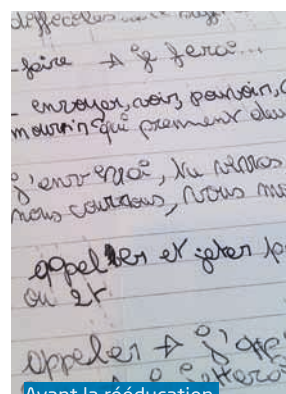 difficiles...
- faire → je ferai...
- envoyer, voir, pouvoir, c
mourir qui prennent deu
j'enverrai, tu verras
nous courrons, vous mo
appeler et jeter p
ou 2t
appeler → j'appe
Avant la rééducation